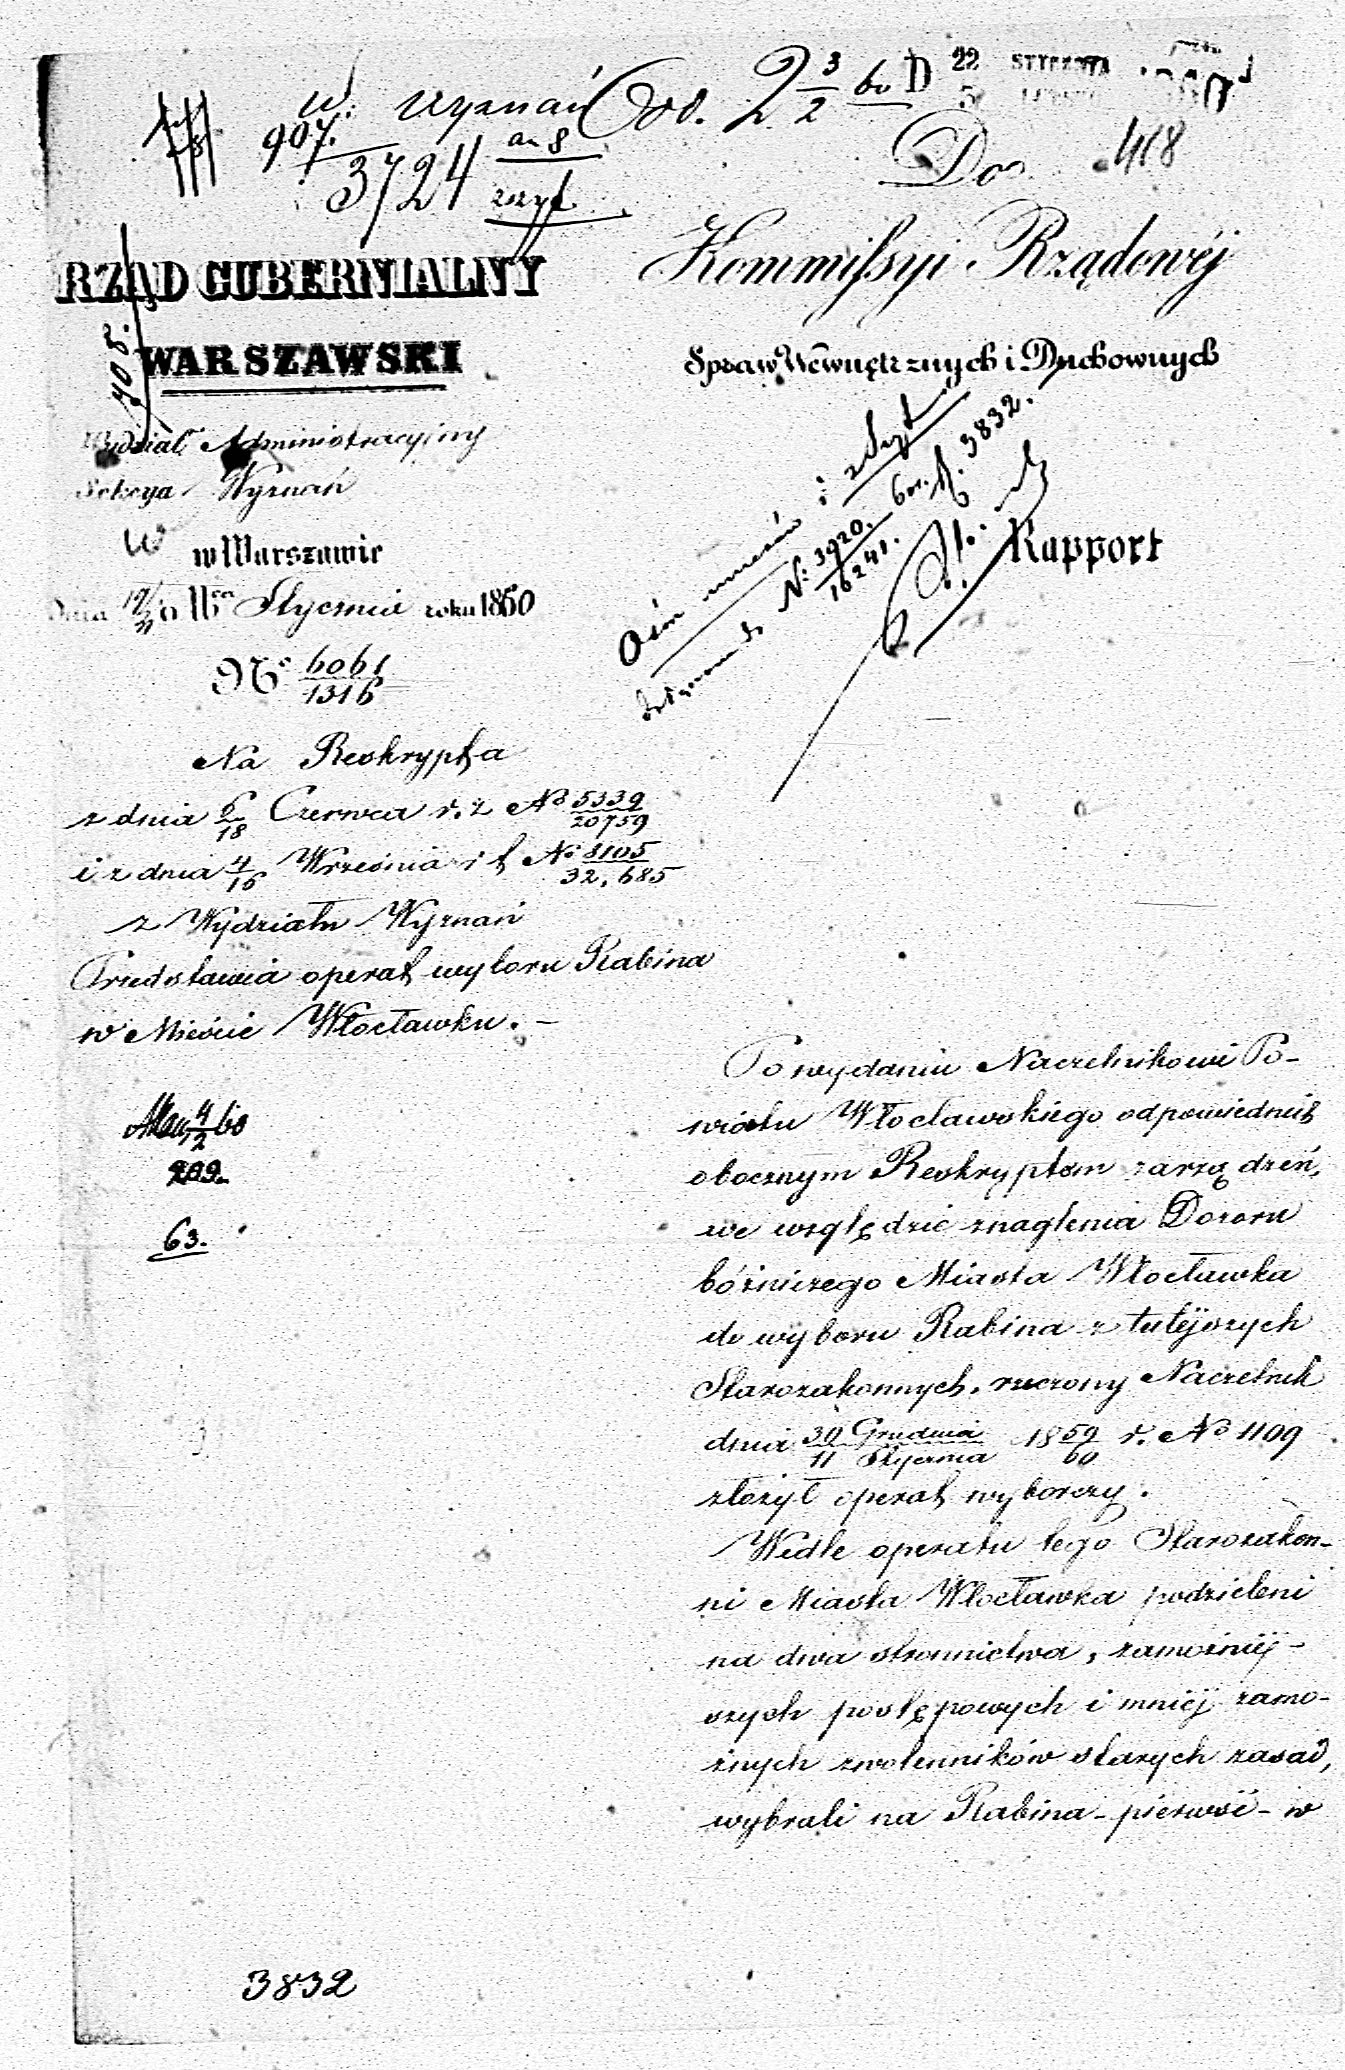 W. Wyznań Od. 2 3/2 60 D 22 STYCZNIA
907.
3724 an 8
zszyt
Do 418
RZĄD GUBERNIALNY
WARSZAWSKI
408.
Wydział Administracyjny
Sekcya Wyznań
w Warszawie
Dnia 19/31 Stycznia roku 1860
No 6061/1316
Na Reskrypta
z dnia 6/18 Czerwca r. z No 5339/20759
i z dnia 4/16 Września r. t No 8105/32,685
z Wydziału Wyznań
Przedstawia operat wyboru Rabina
w Mieście Włocławku. –
4/2 60
209.
63.
Kommissyi Rządowéj
Spraw Wewnętrznych i Duchownych
Ośm i zszyt
No 3920./16241. 3832.
Rapport
Po wydaniu Naczelnikowi Po-
wiatu Włocławskiego odpowiednich
obocznym Reskryptom zarządzeń,
we względzie znaglenia Dozoru
bóżniczego Miasta Włocławka
do wyboru Rabina z tutéjszych
Starozakonnych, rzeczony Naczelnik
dnia 30 Grudnia/11 Stycznia 1859/60 r. No 1109
złożył operat wyborczy.
Wedle operatu tego Starozakon-
ni Miasta Włocławka podzieleni
na dwa stronnictwa, zamożniéj-
szych postępowych i mniéj zamo-
żnych zwolenników starych zasad,
wybrali na Rabina – pierwsi – w
3832